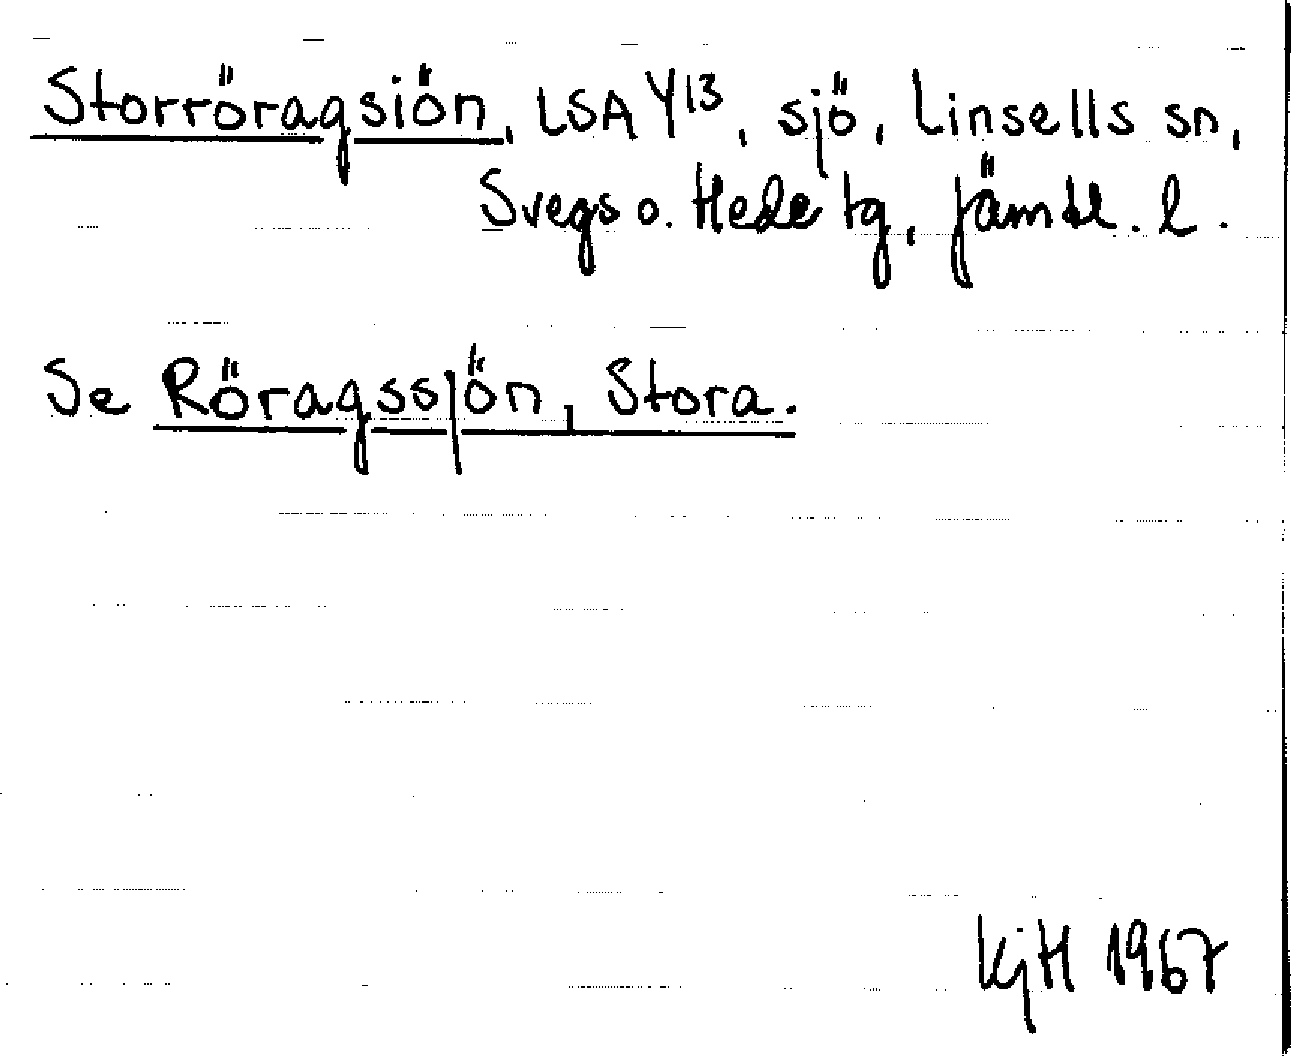 Storröragsiön, LSA Y13, sjö, Linsells sn,
Svegs o. Hede tg, Jämtl. l.
Se Röragssjön, Stora.
KjH 1967